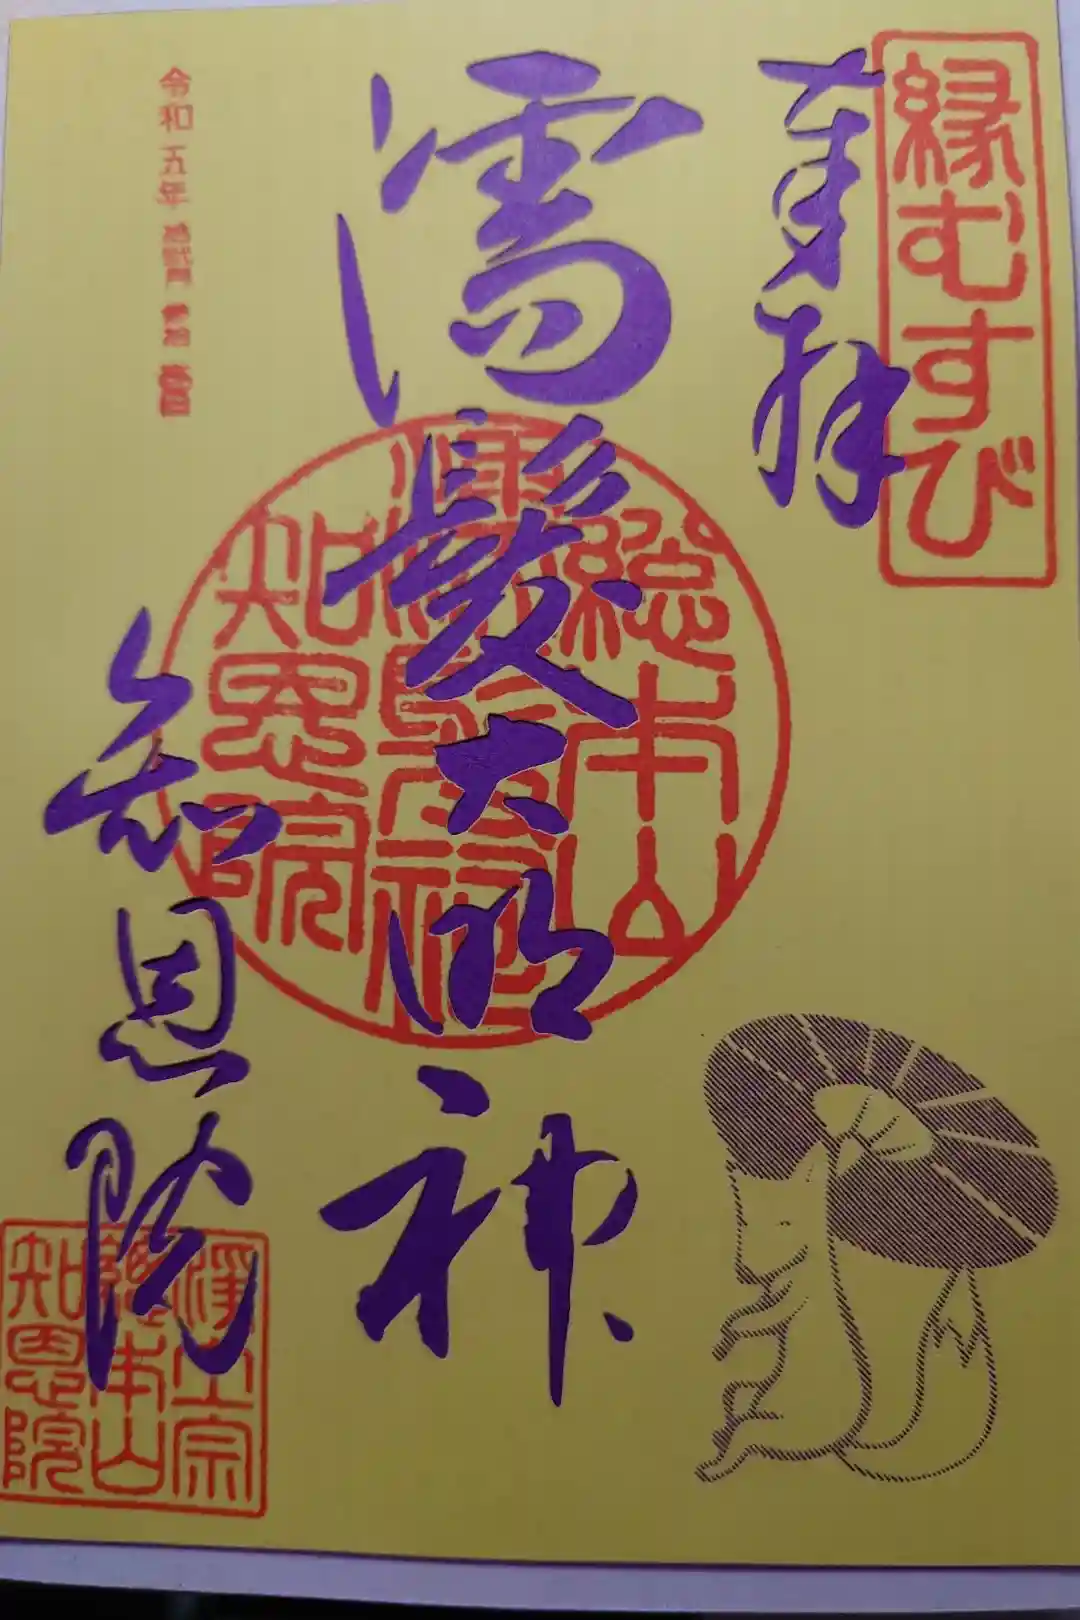 縁むすび
奉拝
濡髪大明神
総本山
濡髪祠
知恩院
知恩院
令和五年
浄土宗
総本山
知恩院